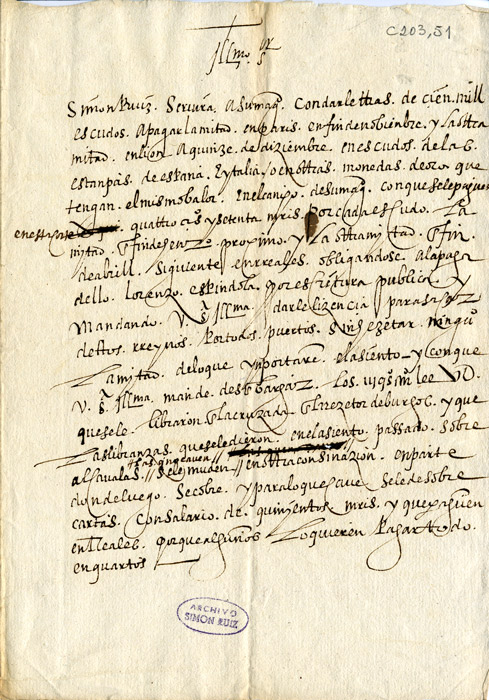 C 203, 51
Illmo Sr
Simon Ruiz. Servira. A su magd. Con dar letras. de cien. mill
escudos. Apagar la mitad. en paris. en fin de nobienbre. y la otra
mitad. en lion. A quinze. de diziembre. en escudos. de la b.
estanpas. de españa. E ytalia / o en otras. monedas. de oro que
tengan. el mismo balor. En el canbio. de su magd. con que se le paguen
quatrocios y setenta mrs. Por cada escudo. La
mitad. fin de henzo proximo. y La otra mitad. fin.
de abrill. siguiente en rreales. obligandose. A la paga
dello. Lorenzo. espindola. por escritura publica. y
Mandando. V. S. Illma. darle lizencia para sacar
destos. rreynos. Por todos. puertos. sin ezetar. ningu
La mitad. de lo que ynportare. el asiento y con que
V. S. Illma. mande. desbargar. los
que se le. libraron la cruzada rrezetor de burgos. y que
Las libranzas. que se le dieron. en el asiento. passado. sobre
alcavalas // se le muden // en otra consinazion. en parte
donde luego. Se cobre. y para lo que se le de sobre
cartas. con salario. de. quinientos mrs. y que paguen
en Reales. porque algunos Lo quieren Pagar todo.
en quartos
ARCHIVO
SIMON RUIZ